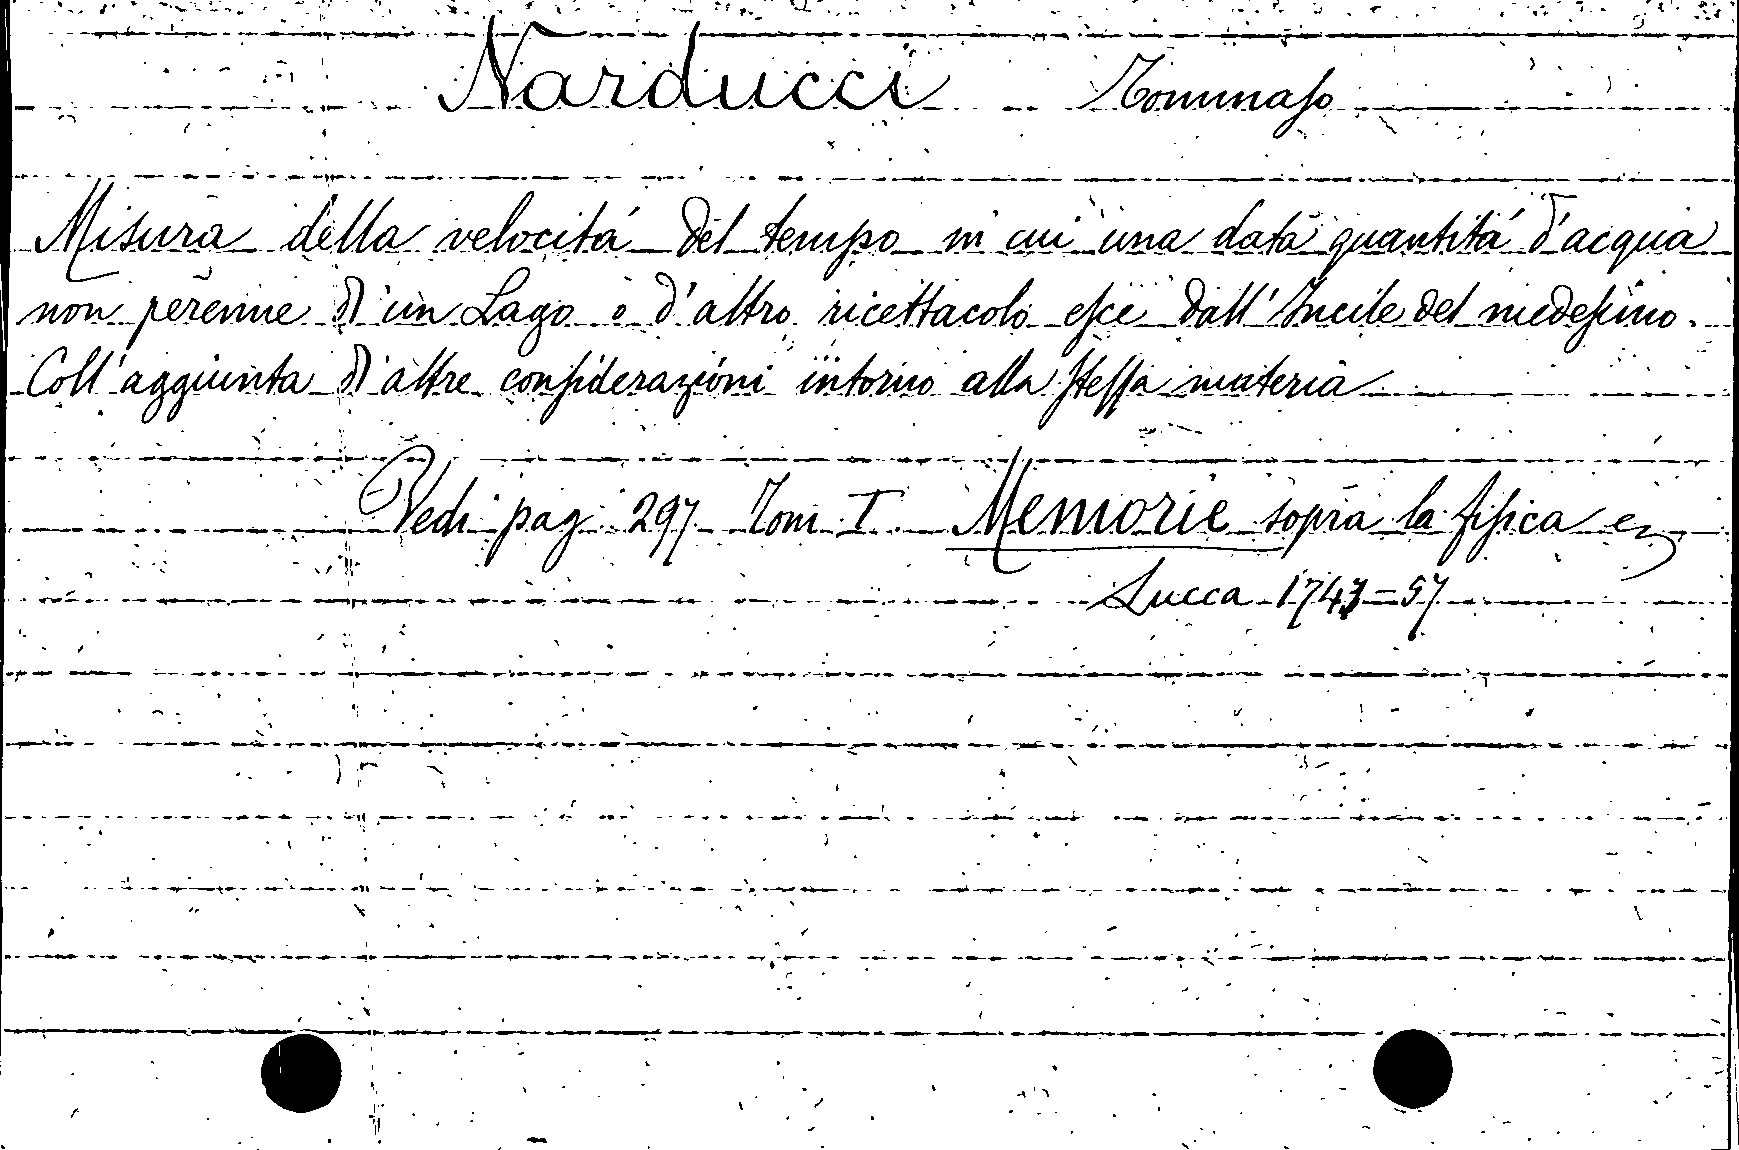 Narducci Tommaſo
Misura della velocitá del tempo in cui una data quantitá d'acqua
non perenne d'un Lago o d'altro ricettacolo eſce dall'Incile del medeſimo.
Coll'aggiunta d'altre conſiderazioni intorno alla ſteſſa materia
Vedi pag 297 Tom I. Memorie sopra la fiſica e
Lucca 1743-57